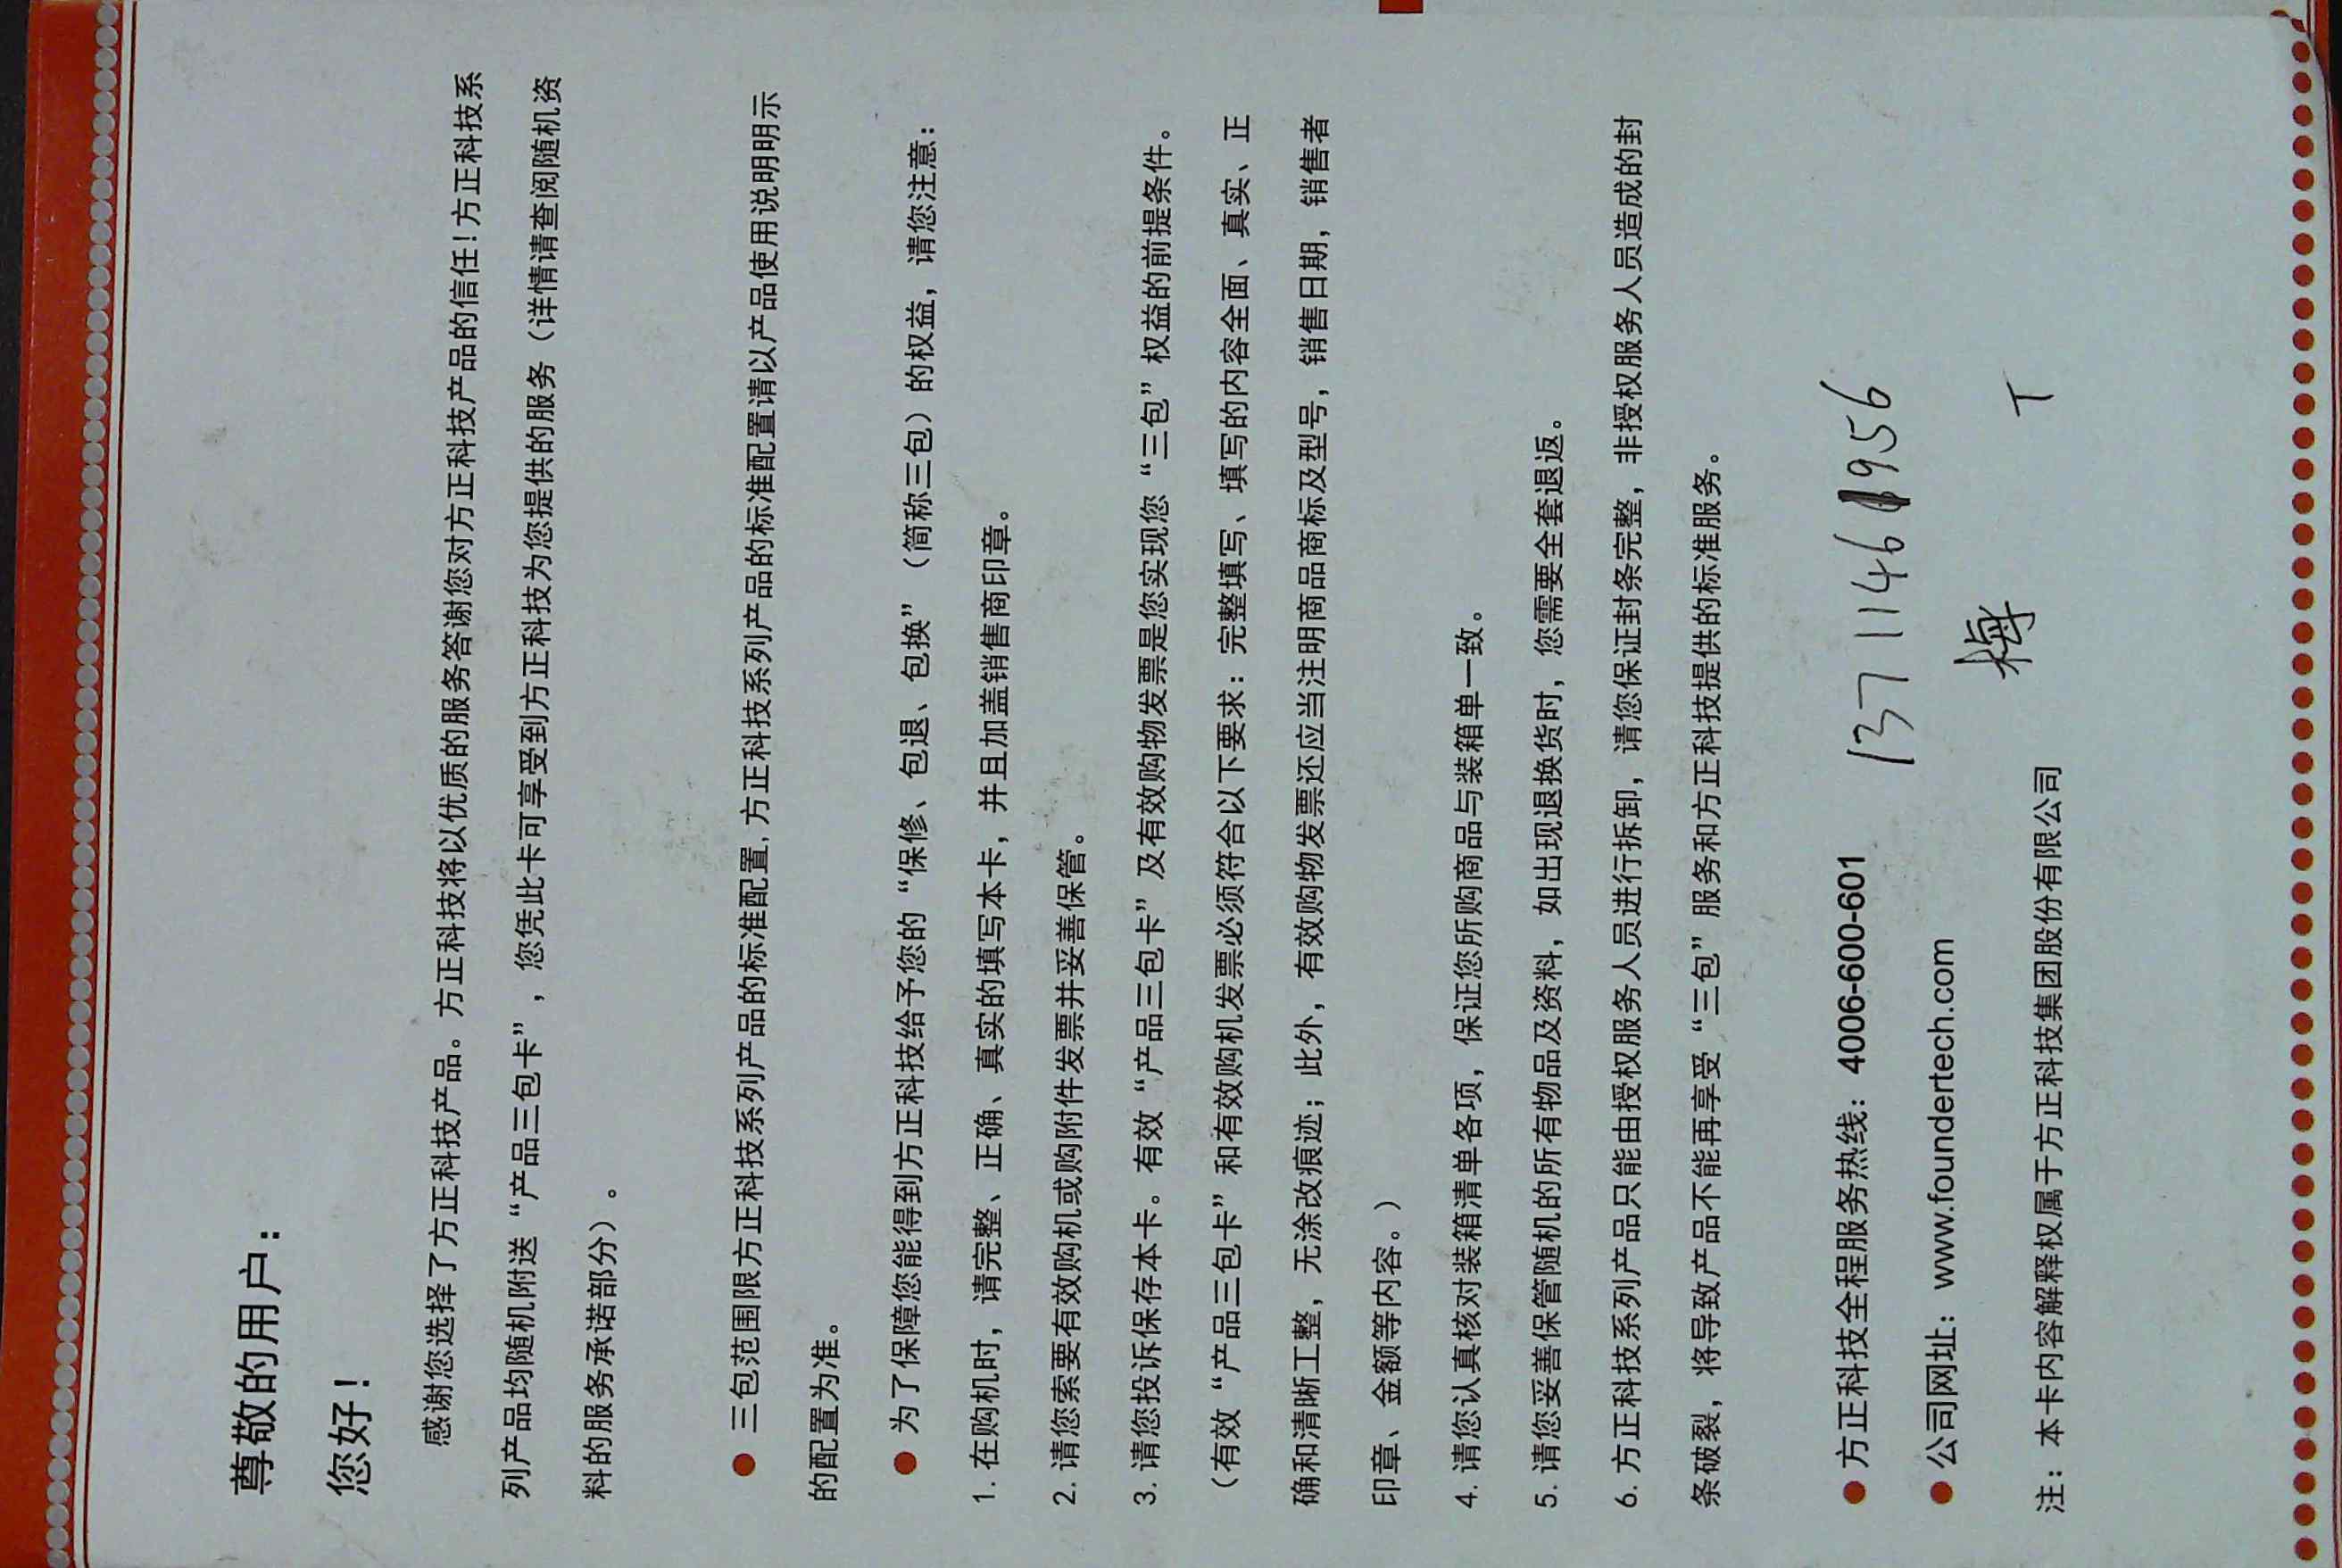 尊敬的用户：
您好！
感谢您选择了方正科技产品。方正科技将以优质的服务答谢您对方正科技产品的信任！方正科技系
列产品均随机附送“产品三包卡”，您凭此卡可享受到方正科技为您提供的服务（详情请查阅随机资
料的服务承诺部分）。
● 三包范围限方正科技系列产品的标准配置，方正科技系列产品的标准配置请以产品使用说明明示
的配置为准。
● 为了保障您能得到方正科技给予您的“保修、包退、包换”（简称三包）的权益，请您注意：
1. 在购机时，请完整、正确、真实的填写本卡，并且加盖销售商印章。
2. 请您索要有效购机或购附件发票并妥善保管。
3. 请您投诉保存本卡。有效“产品三包卡”及有效购物发票是您实现您“三包”权益的前提条件。
（有效“产品三包卡”和有效购机发票必须符合以下要求：完整填写、填写的内容全面、真实、正
确和清晰工整，无涂改痕迹；此外，有效购物发票还应当注明商品商标及型号，销售日期，销售者
印章、金额等内容。）
4. 请您认真核对装箱清单各项，保证您所购商品与装箱单一致。
5. 请您妥善保管随机的所有物品及资料，如出现退换货时，您需要全套退返。
6. 方正科技系列产品只能由授权服务人员进行拆卸，请您保证封条完整，非授权服务人员造成的封
条破裂，将导致产品不能再享受“三包”服务和方正科技提供的标准服务。
● 方正科技全程服务热线：4006-600-601 13711461956
● 公司网址：www.foundertech.com
梅 丁
注：本卡内容解释权属于方正科技集团股份有限公司